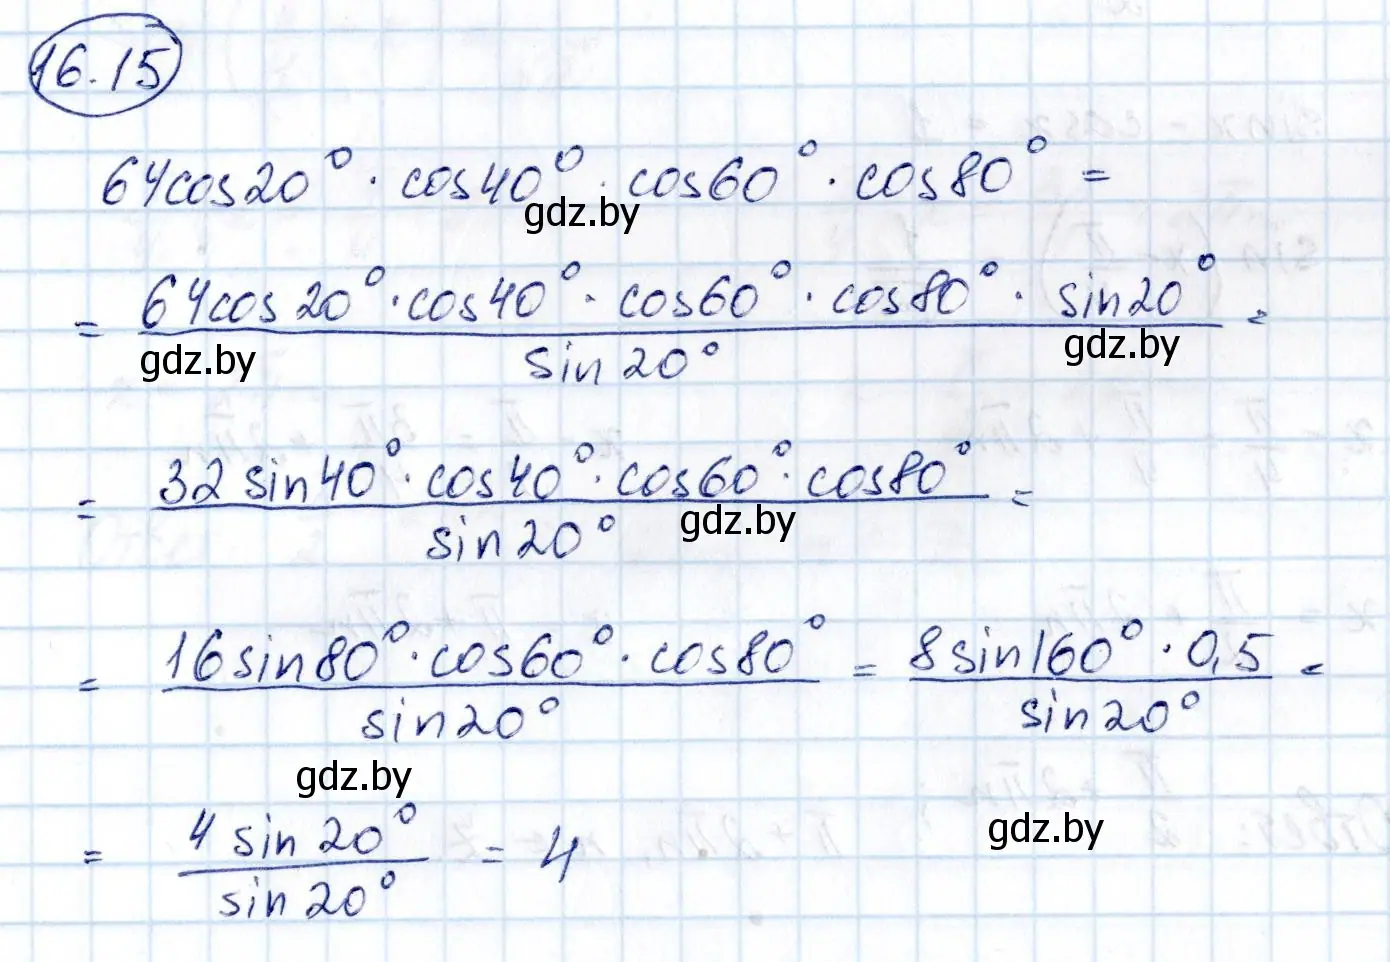 16.15
64cos20° · cos40° · cos60° · cos80° =
gdz.by
= 64cos20° · cos40° · cos60° · cos80° · sin20° / sin20° =
gdz.by gdz.by
= 32sin40° · cos40° · cos60° · cos80° / sin20° =
gdz.by
= 16sin80° · cos60° · cos80° / sin20° = 8sin160° · 0,5 / sin20° =
gdz.by
= 4sin20° / sin20° = 4
gdz.by